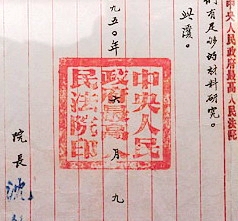 中央人民政府最高人民法院
們有足够的材料研究。
九五〇年六月九
中央人民
政府最高人
民法院印
院長
沈